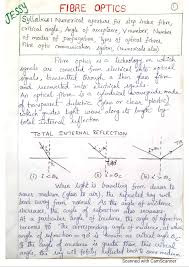 JESSY
FIBRE OPTICS
1
Syllabus: Numerical aperture for step index fibre,
critical angle, angle of acceptance, V number, Number
of modes of propagation, types of optical fibres,
Fibre optic communication system, (numericals also)
Fibre optics is a technology in which
signals are converted from electrical into optical
signals, transmitted through a thin glass fibre
and reconverted into electrical signals.
An optical fibre is a cylindrical waveguide made of
transparent dielectric (glass or clear plastic)
which guides light waves along its length by
total internal reflection.
TOTAL INTERNAL REFLECTION
(a) (b) (c)
When light is travelling from denser to
rarer medium (glass to air), the refracted ray
bends away from normal. As the angle of incidence
increases, the angle of refraction also increases
at a particular angle of incidence, the angle of refraction
becomes 90°. The corresponding angle of incidence at which
angle of refraction = 90° is known as critical angle.
If the angle of incidence is greater than the critical
angle, the ray will totally reflected back to same medium.
Scanned with CamScanner